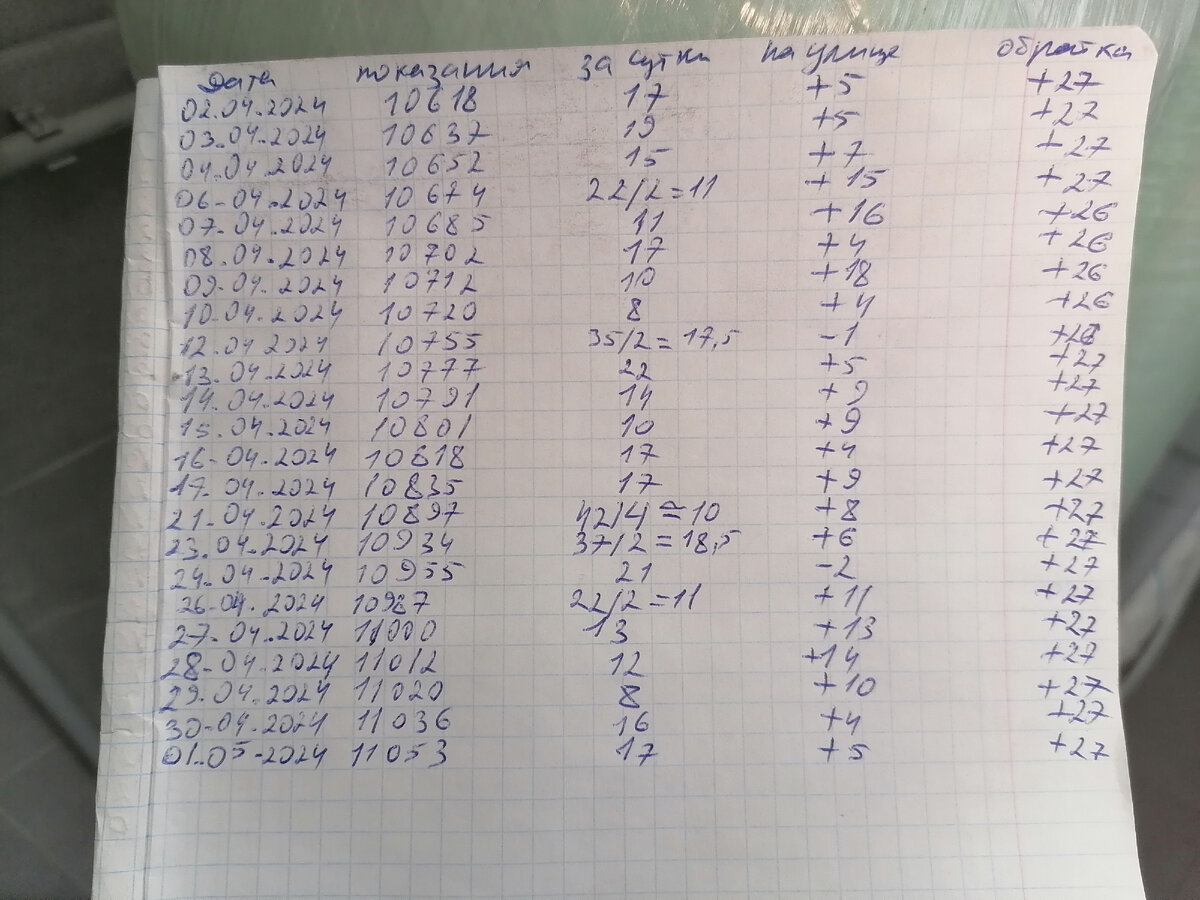 Дата показания за сутки на улице обратка
02.04.2024 10618 17 +5 +27
03.04.2024 10637 19 +5 +27
04.04.2024 10652 15 +7 +27
06-04.2024 10674 22/2=11 +15 +27
07-04.2024 10685 11 +16 +26
08.04.2024 10702 17 +4 +26
09-04.2024 10712 10 +18 +26
10-04.2024 10720 8 +4 +26
12.04 2024 10755 35/2=17,5 -1
13.04.2024 10777 22 +5 +27
14.04.2024 10791 14 +9 +27
15.04.2024 10801 10 +9 +27
16-04.2024 10818 17 +4 +27
17.04.2024 10835 17 +9 +27
21-04.2024 10897 42/4≈10 +8 +27
23.04.2024 10934 37/2=18,5 +6 +27
24-04-2024 10955 21 -2 +27
26-04.2024 10987 22/2=11 +11 +27
27-04.2024 11000 13 +13 +27
28-04.2024 11012 12 +14 +27
29.04.2024 11020 8 +10 +27
30-04-2024 11036 16 +4 +27
01.05-2024 11053 17 +5 +27